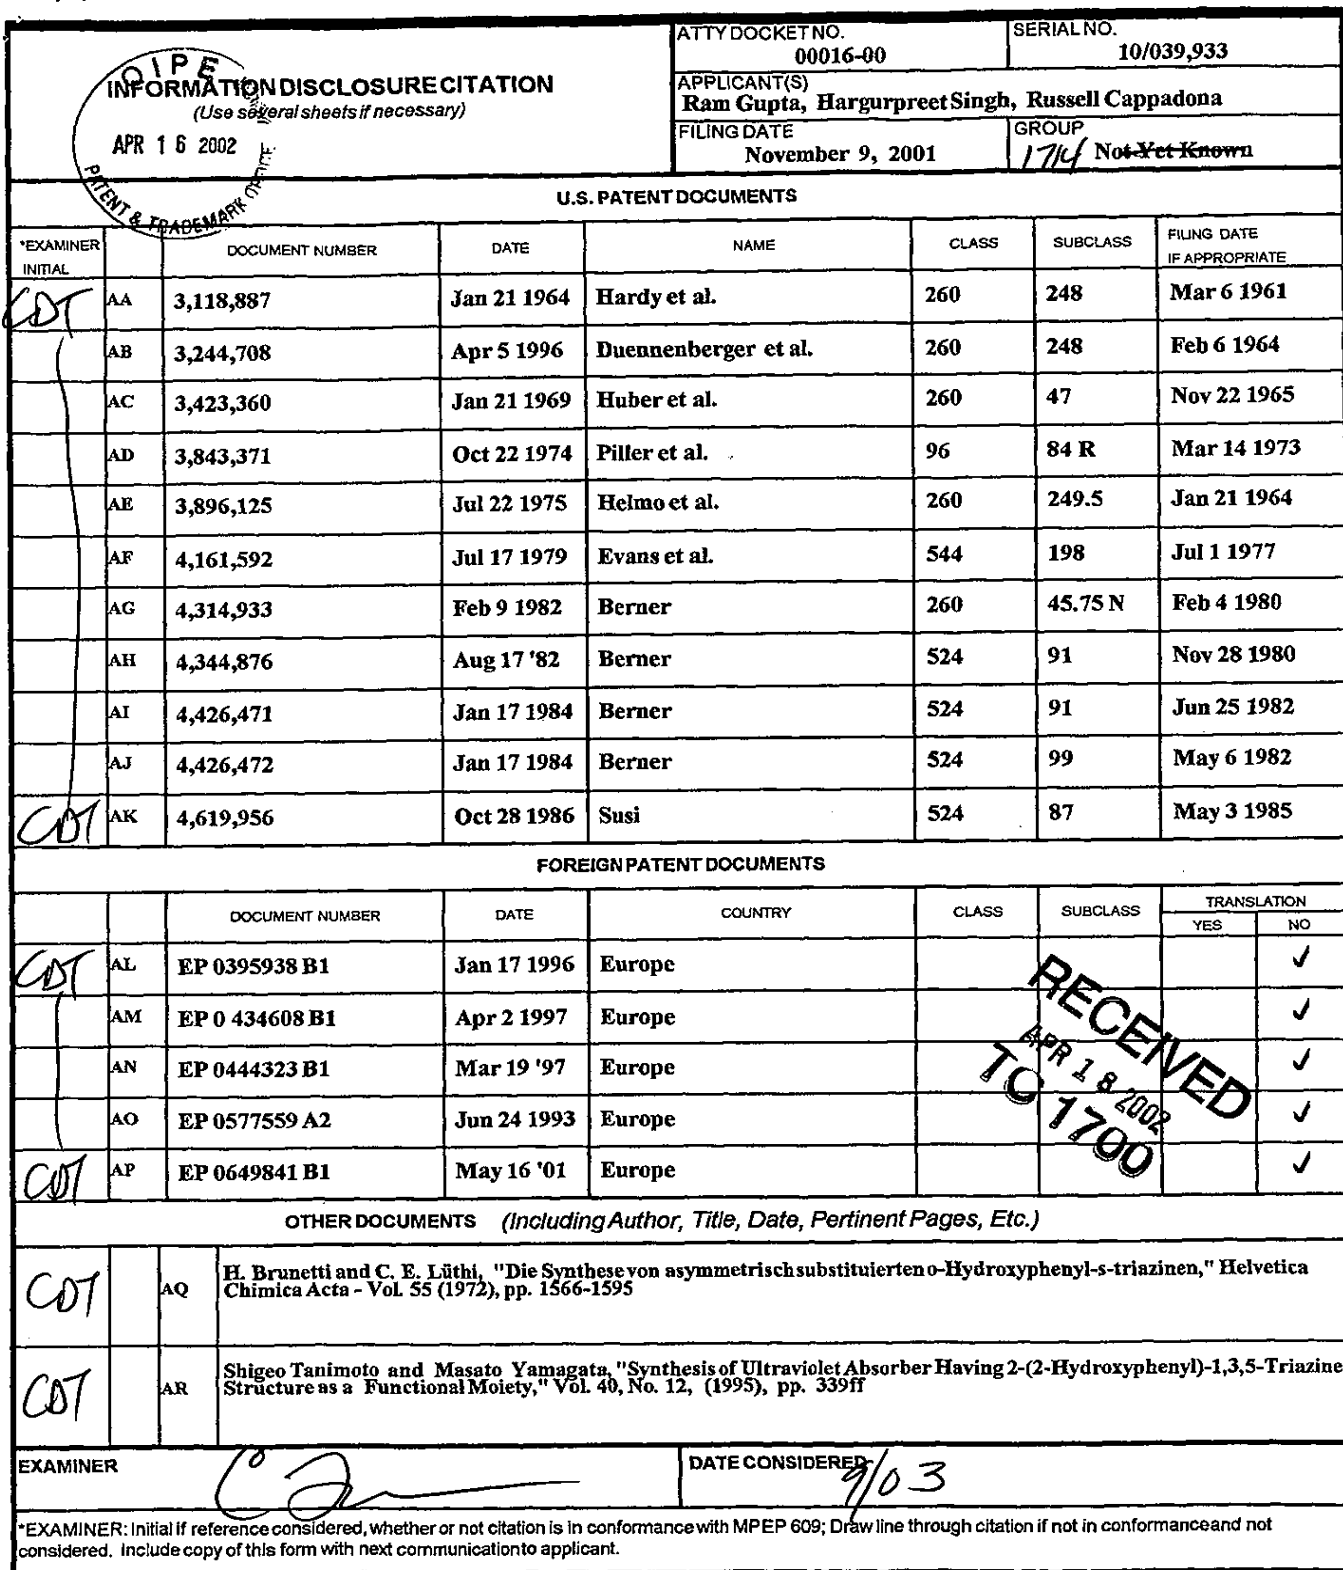 ATTY DOCKET NO.
00016-00
SERIAL NO.
10/039,933
OIPE
INFORMATION DISCLOSURE CITATION
(Use several sheets if necessary)
APR 16 2002
PATENT & TRADEMARK OFFICE
APPLICANT(S)
Ram Gupta, Hargurpreet Singh, Russell Cappadona
FILING DATE
November 9, 2001
GROUP
1714 Not Yet Known
U.S. PATENT DOCUMENTS
*EXAMINER INITIAL DOCUMENT NUMBER DATE NAME CLASS SUBCLASS FILING DATE IF APPROPRIATE
CDT AA 3,118,887 Jan 21 1964 Hardy et al. 260 248 Mar 6 1961
AB 3,244,708 Apr 5 1996 Duennenberger et al. 260 248 Feb 6 1964
AC 3,423,360 Jan 21 1969 Huber et al. 260 47 Nov 22 1965
AD 3,843,371 Oct 22 1974 Piller et al. 96 84 R Mar 14 1973
AE 3,896,125 Jul 22 1975 Helmo et al. 260 249.5 Jan 21 1964
AF 4,161,592 Jul 17 1979 Evans et al. 544 198 Jul 1 1977
AG 4,314,933 Feb 9 1982 Berner 260 45.75 N Feb 4 1980
AH 4,344,876 Aug 17 '82 Berner 524 91 Nov 28 1980
AI 4,426,471 Jan 17 1984 Berner 524 91 Jun 25 1982
AJ 4,426,472 Jan 17 1984 Berner 524 99 May 6 1982
CDT AK 4,619,956 Oct 28 1986 Susi 524 87 May 3 1985
FOREIGN PATENT DOCUMENTS
DOCUMENT NUMBER DATE COUNTRY CLASS SUBCLASS TRANSLATION
YES NO
CDT AL EP 0395938 B1 Jan 17 1996 Europe ✓
AM EP 0 434608 B1 Apr 2 1997 Europe ✓
AN EP 0444323 B1 Mar 19 '97 Europe ✓
AO EP 0577559 A2 Jun 24 1993 Europe ✓
CDT AP EP 0649841 B1 May 16 '01 Europe ✓
RECEIVED
APR 18 2002
TC 1700
OTHER DOCUMENTS (Including Author, Title, Date, Pertinent Pages, Etc.)
CDT AQ H. Brunetti and C. E. Lüthi, "Die Synthese von asymmetrisch substituierten o-Hydroxyphenyl-s-triazinen," Helvetica
Chimica Acta - Vol. 55 (1972), pp. 1566-1595
CDT AR Shigeo Tanimoto and Masato Yamagata, "Synthesis of Ultraviolet Absorber Having 2-(2-Hydroxyphenyl)-1,3,5-Triazine
Structure as a Functional Moiety," Vol. 40, No. 12, (1995), pp. 339ff
EXAMINER
DATE CONSIDERED 9/03
*EXAMINER: Initial if reference considered, whether or not citation is in conformance with MPEP 609; Draw line through citation if not in conformance and not
considered. Include copy of this form with next communication to applicant.